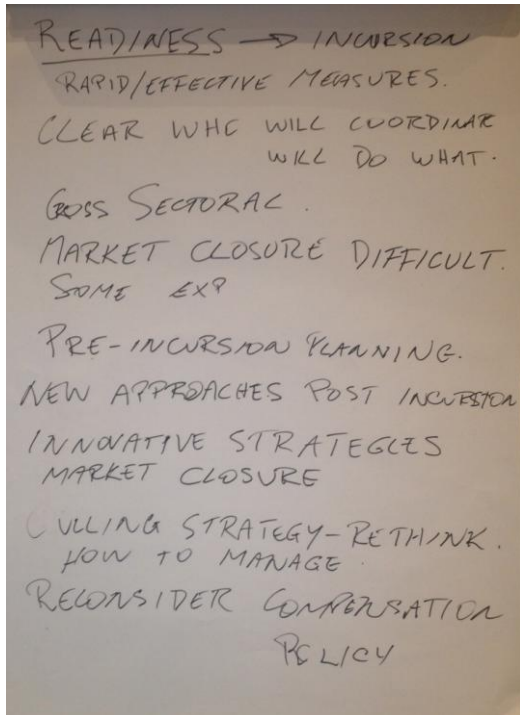 READINESS → INCURSION
RAPID/EFFECTIVE MEASURES.
CLEAR WHO WILL COORDINATE
WILL DO WHAT.
CROSS SECTORAL.
MARKET CLOSURE DIFFICULT.
SOME EXP
PRE-INCURSION PLANNING.
NEW APPROACHES POST INCURSION
INNOVATIVE STRATEGIES
MARKET CLOSURE
CULLING STRATEGY-RETHINK.
HOW TO MANAGE.
RECONSIDER COMPENSATION
POLICY